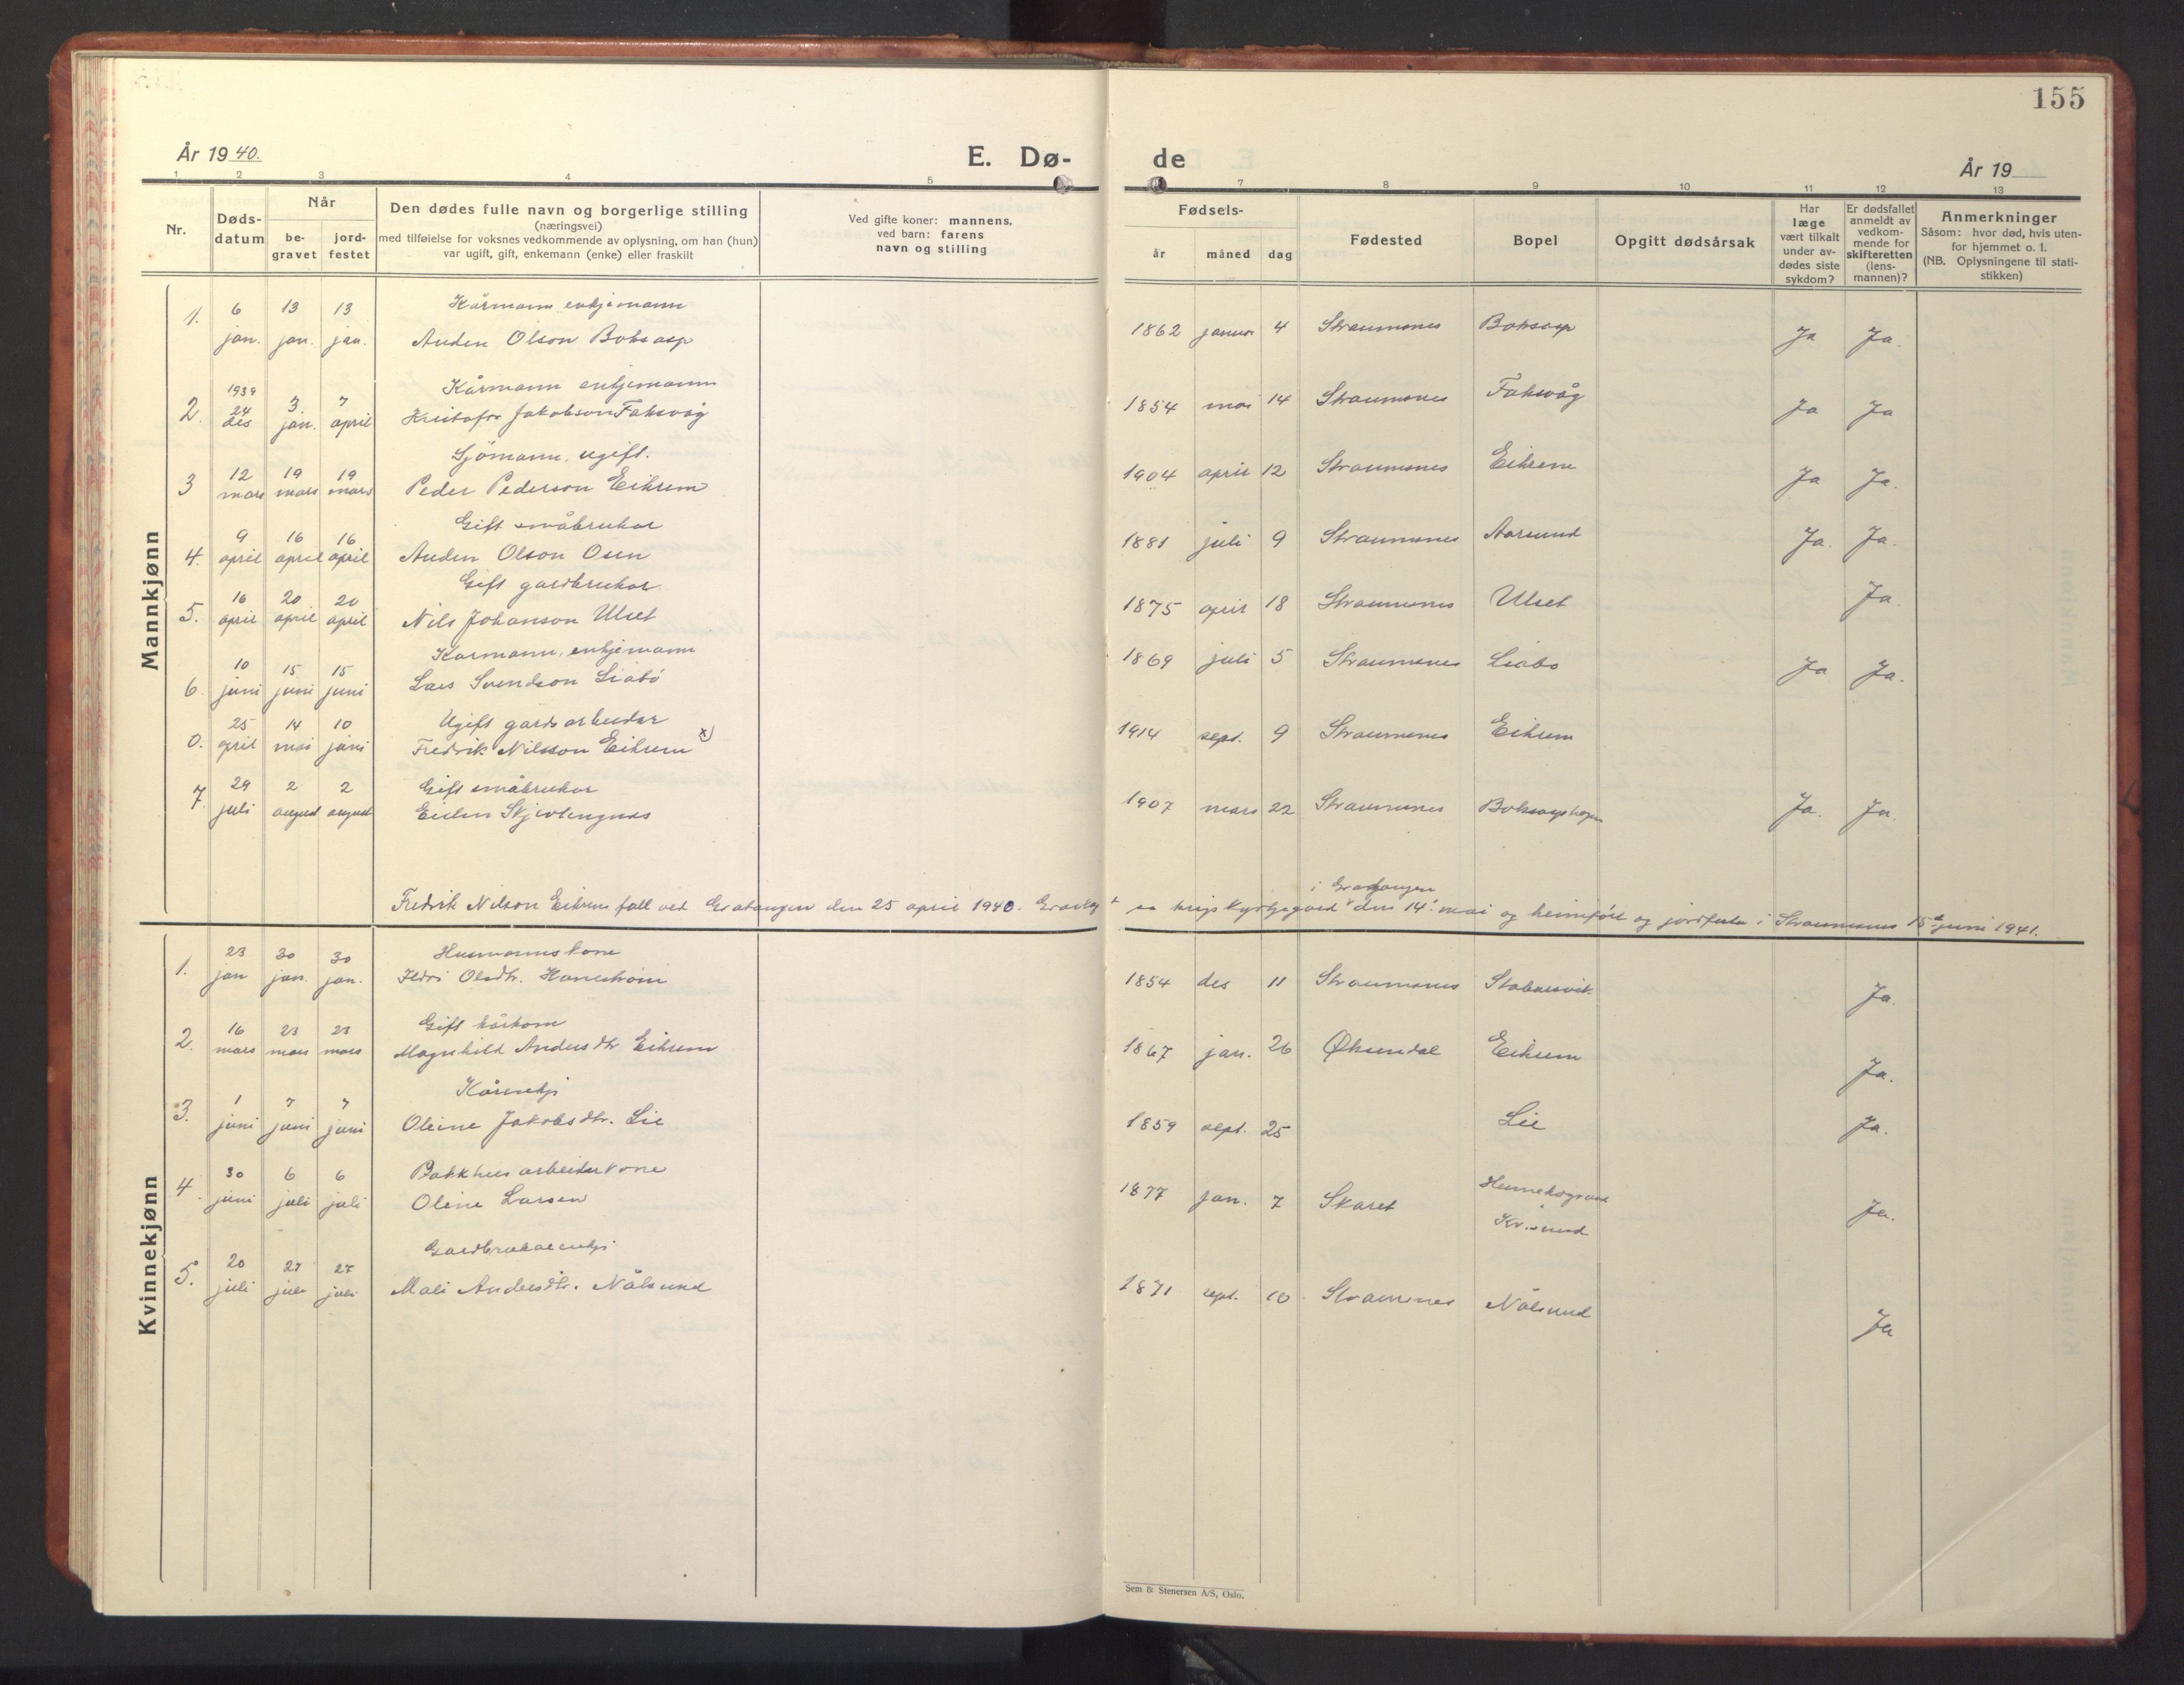 155
År 1940.
E. Dø-
de
År 19
1 2 3 4 5 7 8 9 10 11 12 13
Nr.
Døds-
datum
Når
be-
gravet
jord-
festet
Den dødes fulle navn og borgerlige stilling
(næringsvei)
med tilføielse for voksnes vedkommende av oplysning, om han (hun)
var ugift, gift, enkemann (enke) eller fraskilt
Ved gifte koner: mannens,
ved barn: farens
navn og stilling
Fødsels-
år måned dag
Fødested
Bopel
Opgitt dødsårsak
Har
læge
vært tilkalt
under av-
dødes siste
sykdom?
Er dødsfallet
anmeldt av
vedkom-
mende for
skifteretten
(lens-
mannen)?
Anmerkninger
Såsom: hvor død, hvis uten-
for hjemmet o. l.
(NB. Oplysningene til stati-
stikken)
Mannkjønn
6 13 13 Kårmann enkjemann
1. jan. jan. jan. Anden Olson Boksasp 1862 januar 4 Straumsnes Boksasp Ja Ja.
1939 Kårmann enkjemann
2. 24 des 3. jan. 7 april Kristofer Jakobson Faksvåg 1854 mai 14 Straumsnes Faksvåg Ja Ja
Sjömann, ugift.
3 12 mars 19 mars 19 mars Peder Pederson Eikrem 1904 april 12 Straumsnes Eikrem Ja Ja.
Gift småbrukar
4. 9 april 16 april 16 april Anden Olson Osen 1881 juli 9 Straumsnes Aarsund Ja. Ja.
Gift gardbrukar.
5. 16 april 20 april 20 april Nils Johanson Ulset 1875 april 18 Straumsnes Ulset Ja.
Kårmann, enkjemann
6. 10 juni 15 juni 15 juni Lars Svendson Liabö 1869 juli 5 Straumsnes Liabö Ja Ja.
Ugift gardsarbeidar
0. 25 april 14 mai 10 juni Fredrik Nilsson Eikrem x) 1914 sept. 9 Straumsnes Eikrem
Gift småbrukar
7. 29 juli 2 august 2 august Skjevlingnes 1907 mars 22 Straumsnes Boksasphagen Ja. Ja.
i Gratangen
Fredrik Nilson Eikrem fall ved Gratangen den 25 april 1940. Gravlagt krigskyrkjegard den 14. mai og heimfört og jordfesta i Straumsnes 15de juni 1941.
Kvinnekjønn
Husmannskone
1. 23 jan 30 jan. 30 jan. Ildri Olsdtr. Hanestrøm 1854 des 11 Straumsnes Stabursvik Ja.
Gift kårkone
2. 16 mars 23 mars 23 mars Magnhild Andersdtr Eikrem 1867 jan. 26 Øksendal Eikrem Ja.
Kårenkje
3. 1 juni 7 juni 7 juni Oleine Jakobsdtr. Lie 1859 sept. 25 Lie Ja.
Bakkhusarbeidarkone
4. 30 juni 6 juli 6 juli Oline Larsen 1877 jan. 7 Skaret Kr.sund Ja.
Gardbrukarenkje
5. 20 juli 27 juli 27 juli Mali Andersdtr. Nålsund 1871 sept. 10 Straumsnes Nålsund Ja
Sem & Stenersen A/S, Oslo.